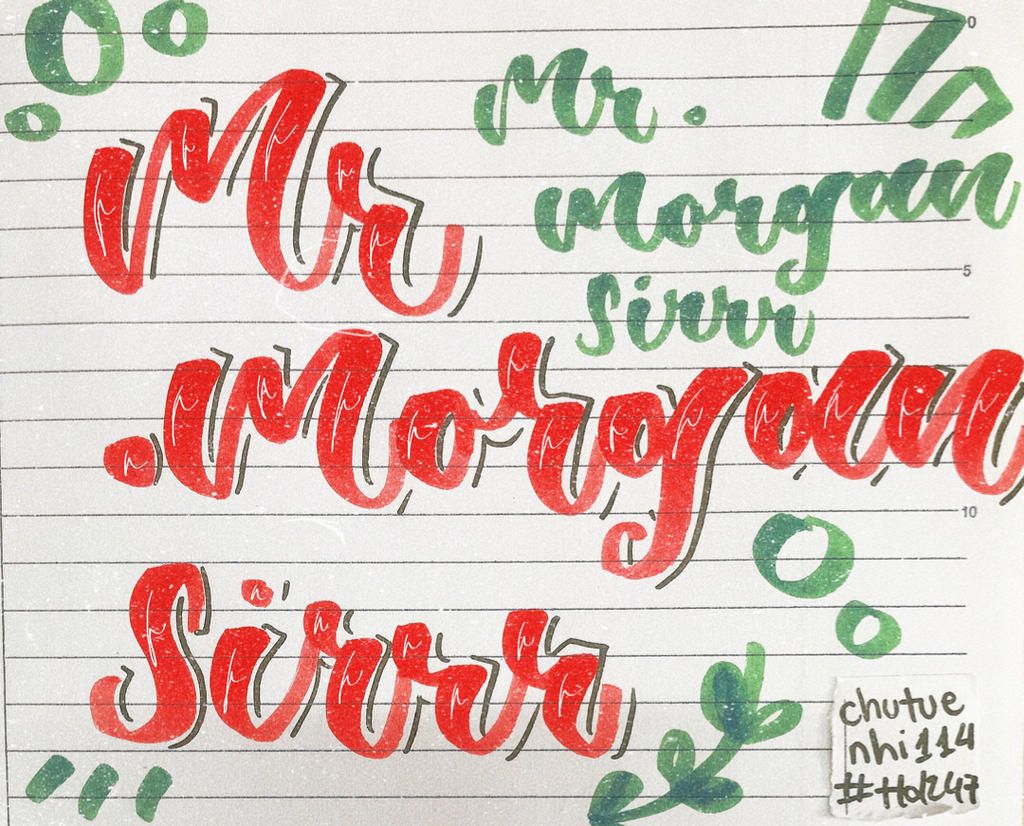 Mr
.Morgan
Sirrr
Mr.
Morgan
Sirrr
0
5
10
chutue
nhi114
#Hoc247